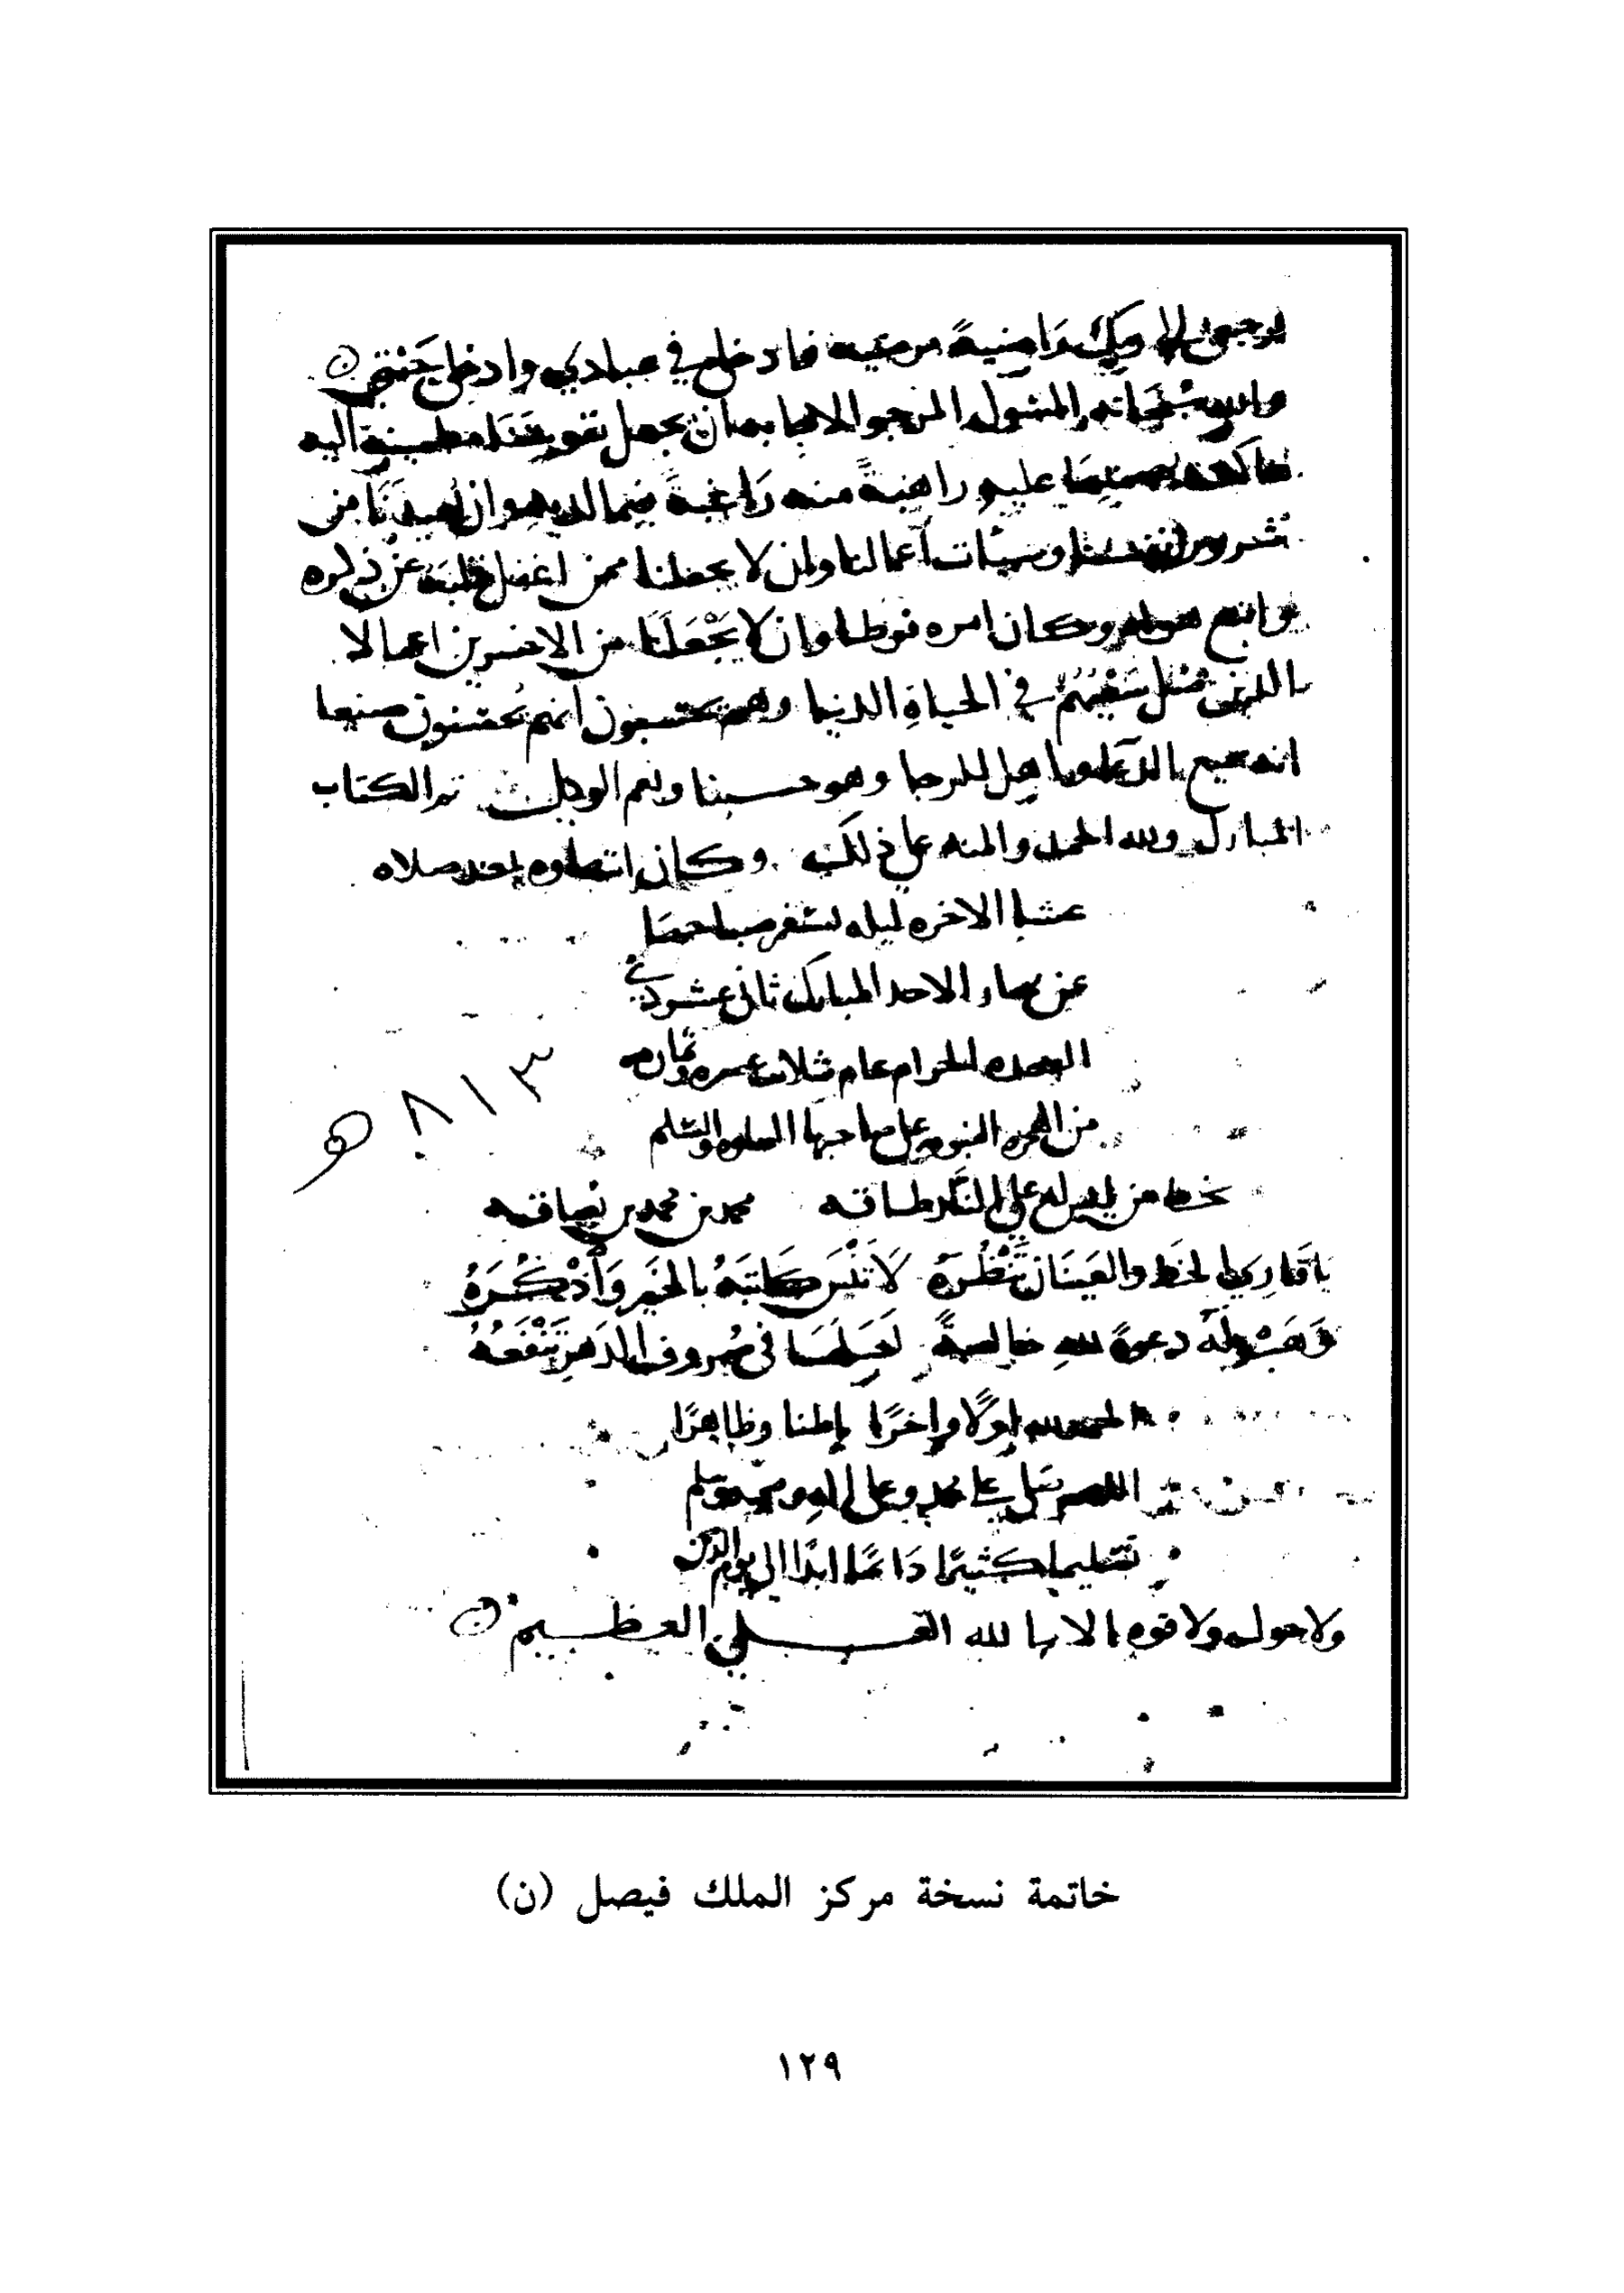 ارجعي الى ربك رَاضيةً مرضيه فادخلي في عبادي وادخلي جَنّتي
والله سُبحانه المسئول المرجو الاجابه ان يجعل نفوسنا مطمينة اليه
عاكفه بهمتها عليه راهبةً منه رَاغبةً فيما لديه وان يعيذنَا من
شرور انفسنا وسيّات اعمالنا وان لا يجعلنا ممن اغفل قلبه عن ذكره
واتبع هواه وكان امره فرطا وان لا يَجْعَلَنَا من الاخسرين اعمالا
الذين ضل سَعْيُهُمْ في الحياةِ الدنيا وهم يحسبون انهم يُحسنون صنيعا
انه سميع الدعا واهل الرجا وهو حسبنا ونعم الوكيل تم الكتاب
المبارك ولله الحمد والمنه على ذلك وكان انتهاوه بعد صلاه
عشا الاخره ليله تسفر صباحها
عن نهار الاحد المبارك ثاني عشر ذي
القعده الحرام عام ثلاث عشره وثمان مايه
من الهجره النبويه على صاحبها الصلاه والسلم
٨١٣ هـ
بخط من ليس له على النار طاقه محمد بن محمد بن
يا قاري الخط والعينان تنْظُره لاَ تنْسَ كاتبَهُ بالخير وَاَذْكُرَهُ
وَهَبْ له دعوةً للهِ خالصةً لَعَلهَا في صُروف الدَهرِ تَنْفَعُهُ
الحمد لله اوَّلاً واخرًا باطنا وظاهرًا
اللهم صل على محمد وعلى اله وصحبه وسلم
تسليما كثيرًا دَائمًا ابدًا الى يوم الدين
ولا حول ولا قوه الا بالله العلي العظيم
خاتمة نسخة مركز الملك فيصل (ن)
١٢٩